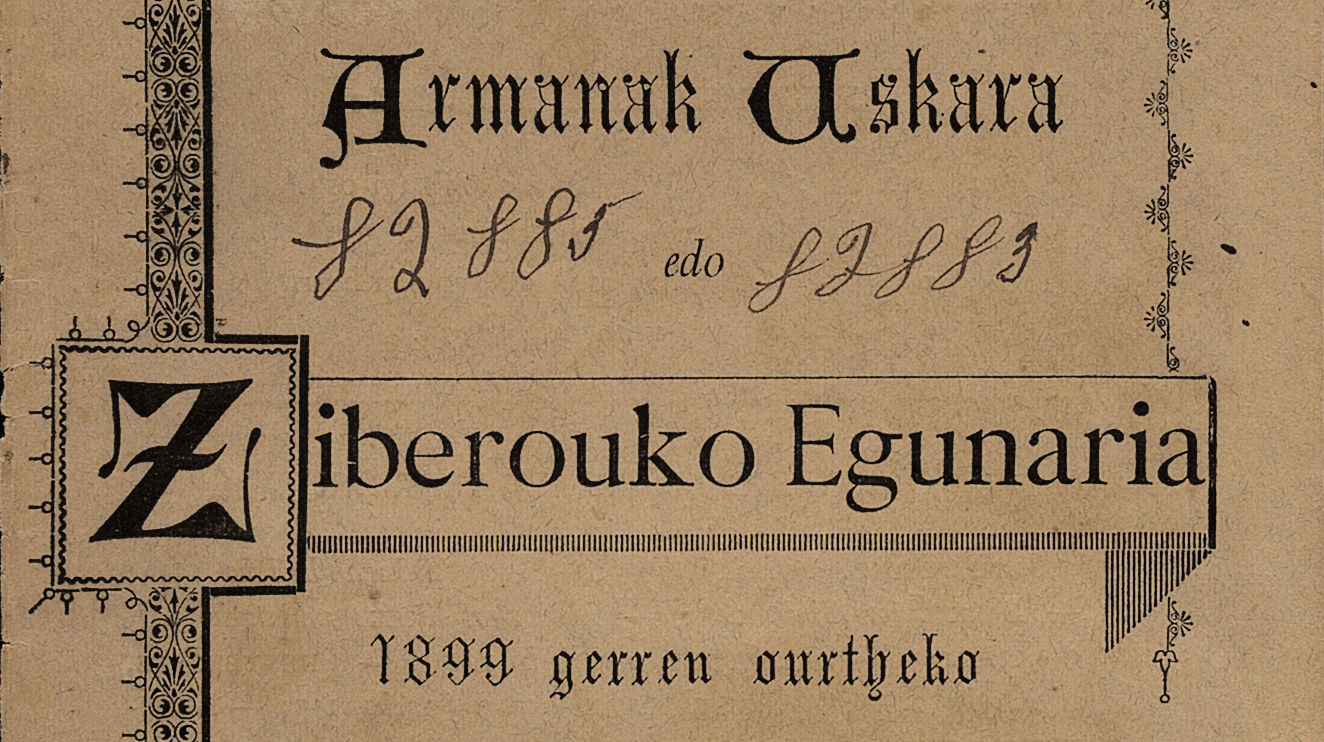 Armanak Uskara
edo
Ziberouko Egunaria
1899 gerren ourtheko